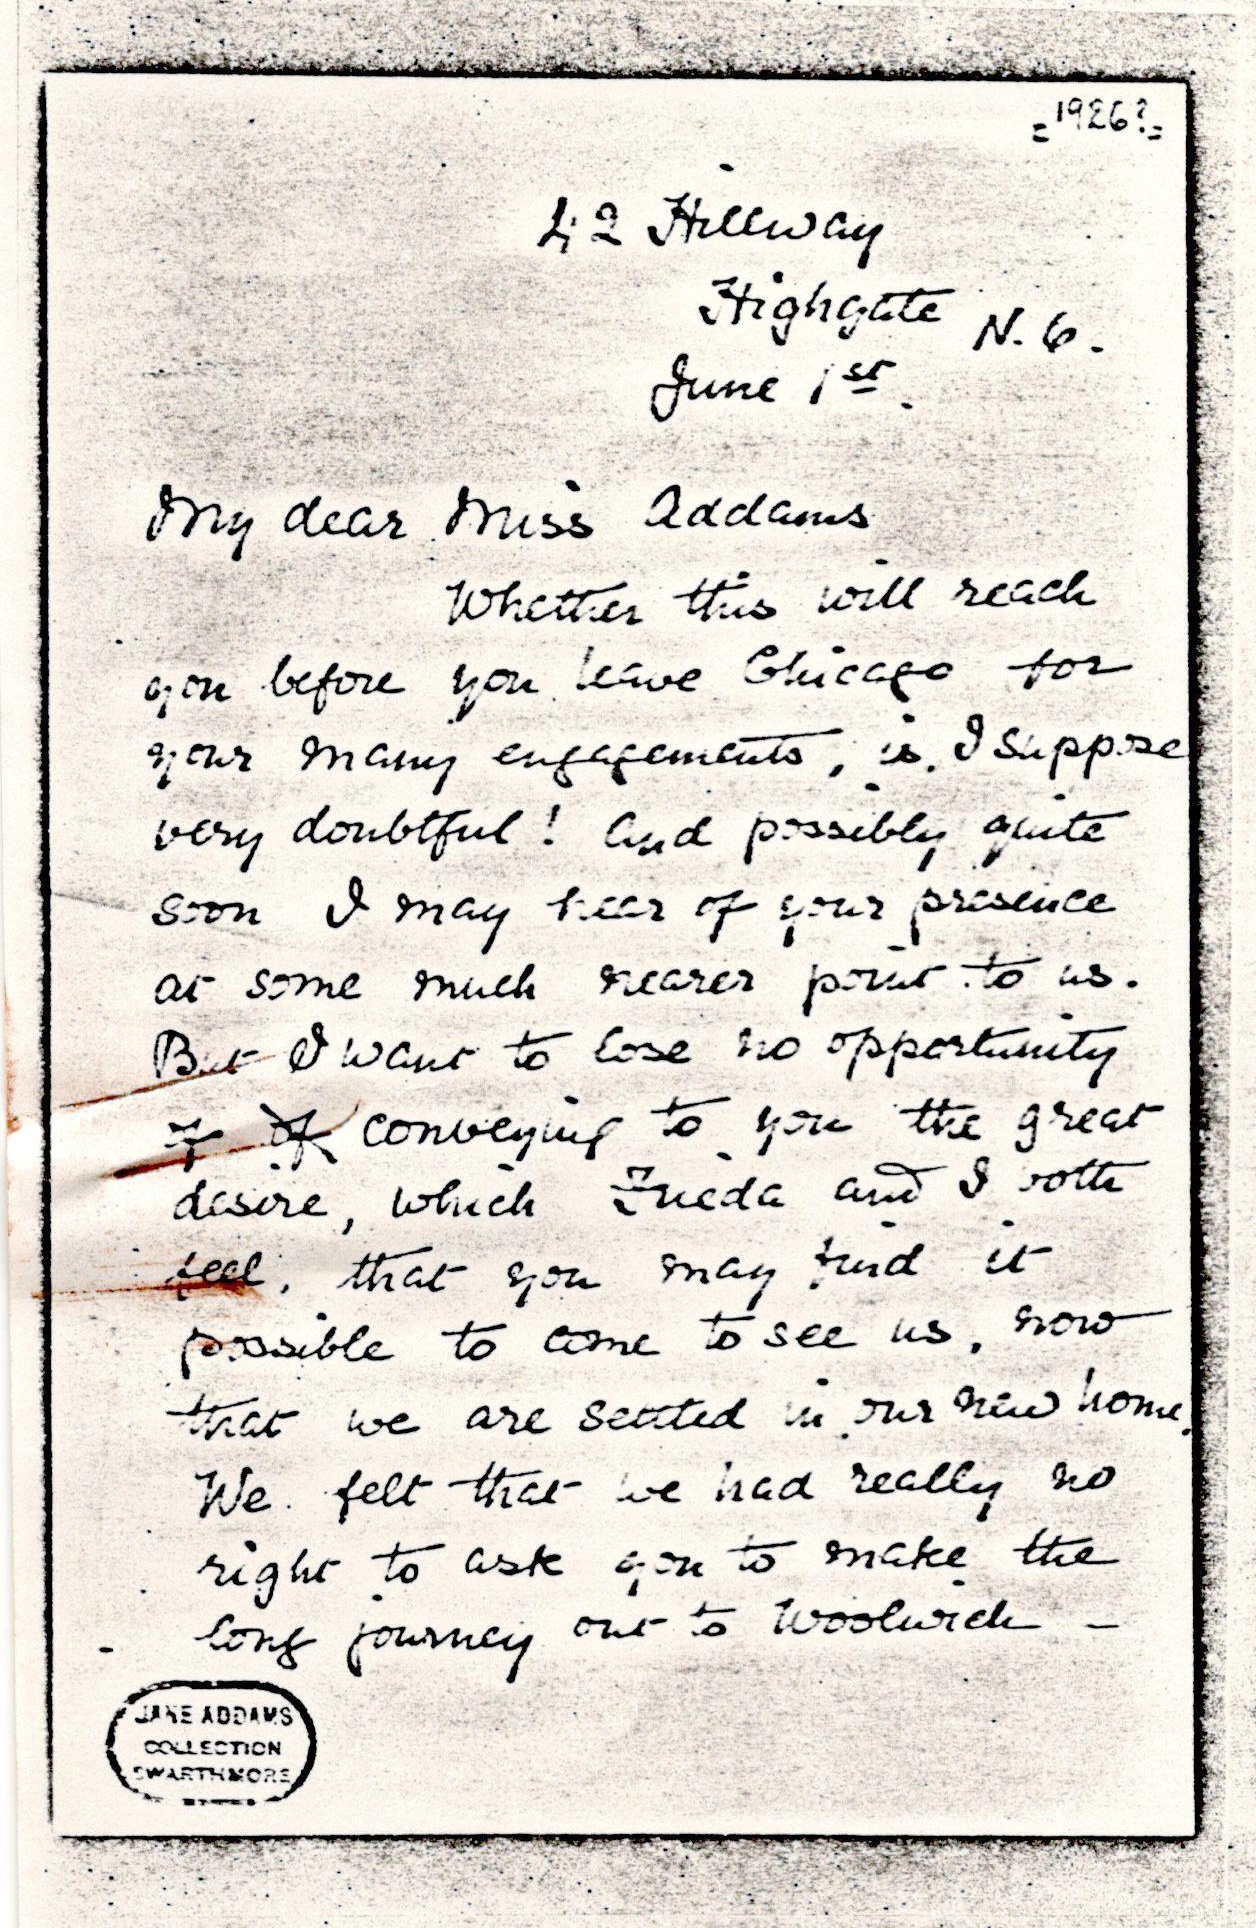 =1926?=
42 Hillway
Highgate N. 6.
June 1st.
My dear Miss Addams
Whether this will reach
you before you leave Chicago for
your many engagements, is, I suppose
very doubtful! And possibly quite
soon I may hear of your presence
at some much nearer point to us.
But I want to lose no opportunity
of of conveying to you the great
desire, which Frieda and I both
feel, that you may find it
possible to come to see us, now
that we are settled in our new home.
We felt that we had really no
right to ask you to make the
long journey out to Woolwich –
JANE ADDAMS
COLLECTION
SWARTHMORE